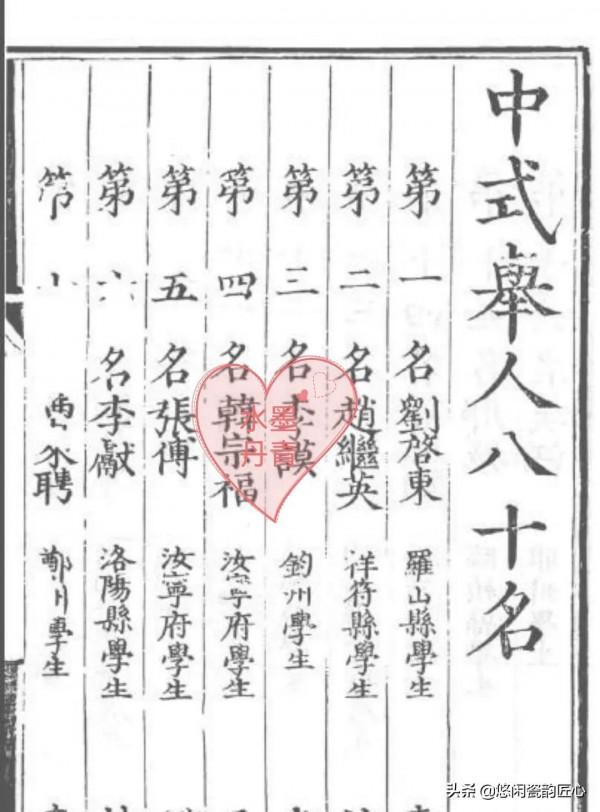 中式舉人八十名
第一名劉啓東 羅山縣學生
第二名趙繼英 祥符縣學生
第三名李謨 鈞州學生
第四名韓宗福 汝寧府學生
第五名張傅 汝寧府學生
第六名李獻 洛陽縣學生
第 聘 學生
水墨
丹青
头条 @悠闲瓷韵匠心